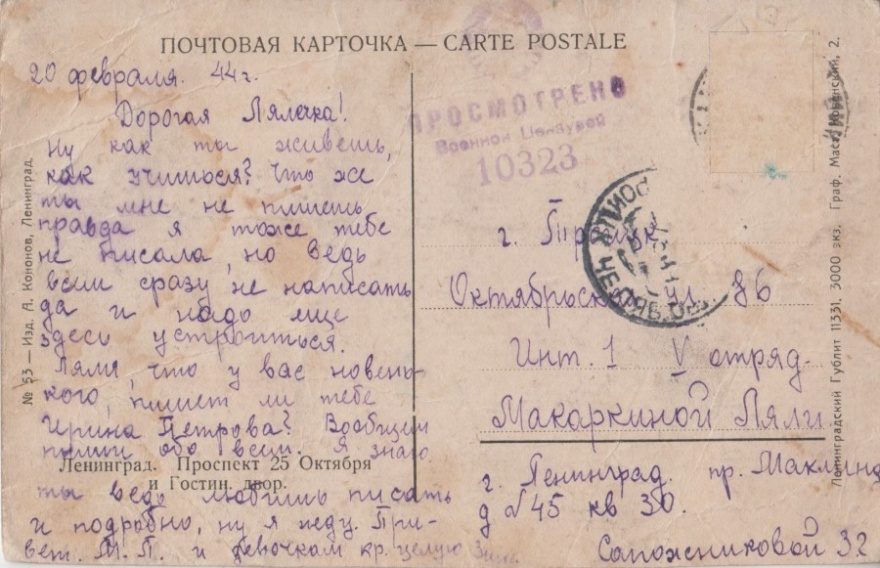 ПОЧТОВАЯ КАРТОЧКА — CARTE POSTALE
20 февраля. 44 г.
Дорогая Лялечка!
Ну как ты живешь,
как учишься? Что же
ты мне не пишешь
правда я тоже тебе
не писала, но ведь
всем сразу не написать
да и надо еще
здесь устроиться.
Ляля, что у вас новень-
кого, пишет ли тебе
Ирина Петрова? Вообщем
пиши обо всем. Я знаю
ты ведь любишь писать
и подробно, ну я жду. При-
вет. М. П. и девочкам кр. целую
Ленинград. Проспект 25 Октября
и Гостин. двор.
№ 53 — Изд. А. Кононов, Ленинград
ПРОСМОТРЕНО
Военной Цензурой
10323
г.
Октябрьск ул 86
Инт. 1 V отряд.
Макаркиной Ляли
г. Ленинград. пр. Маклина
д № 45 кв 30.
Сапожниковой
Ленинградский Гублит 11331. 3000 экз. Граф. Маст. 2.